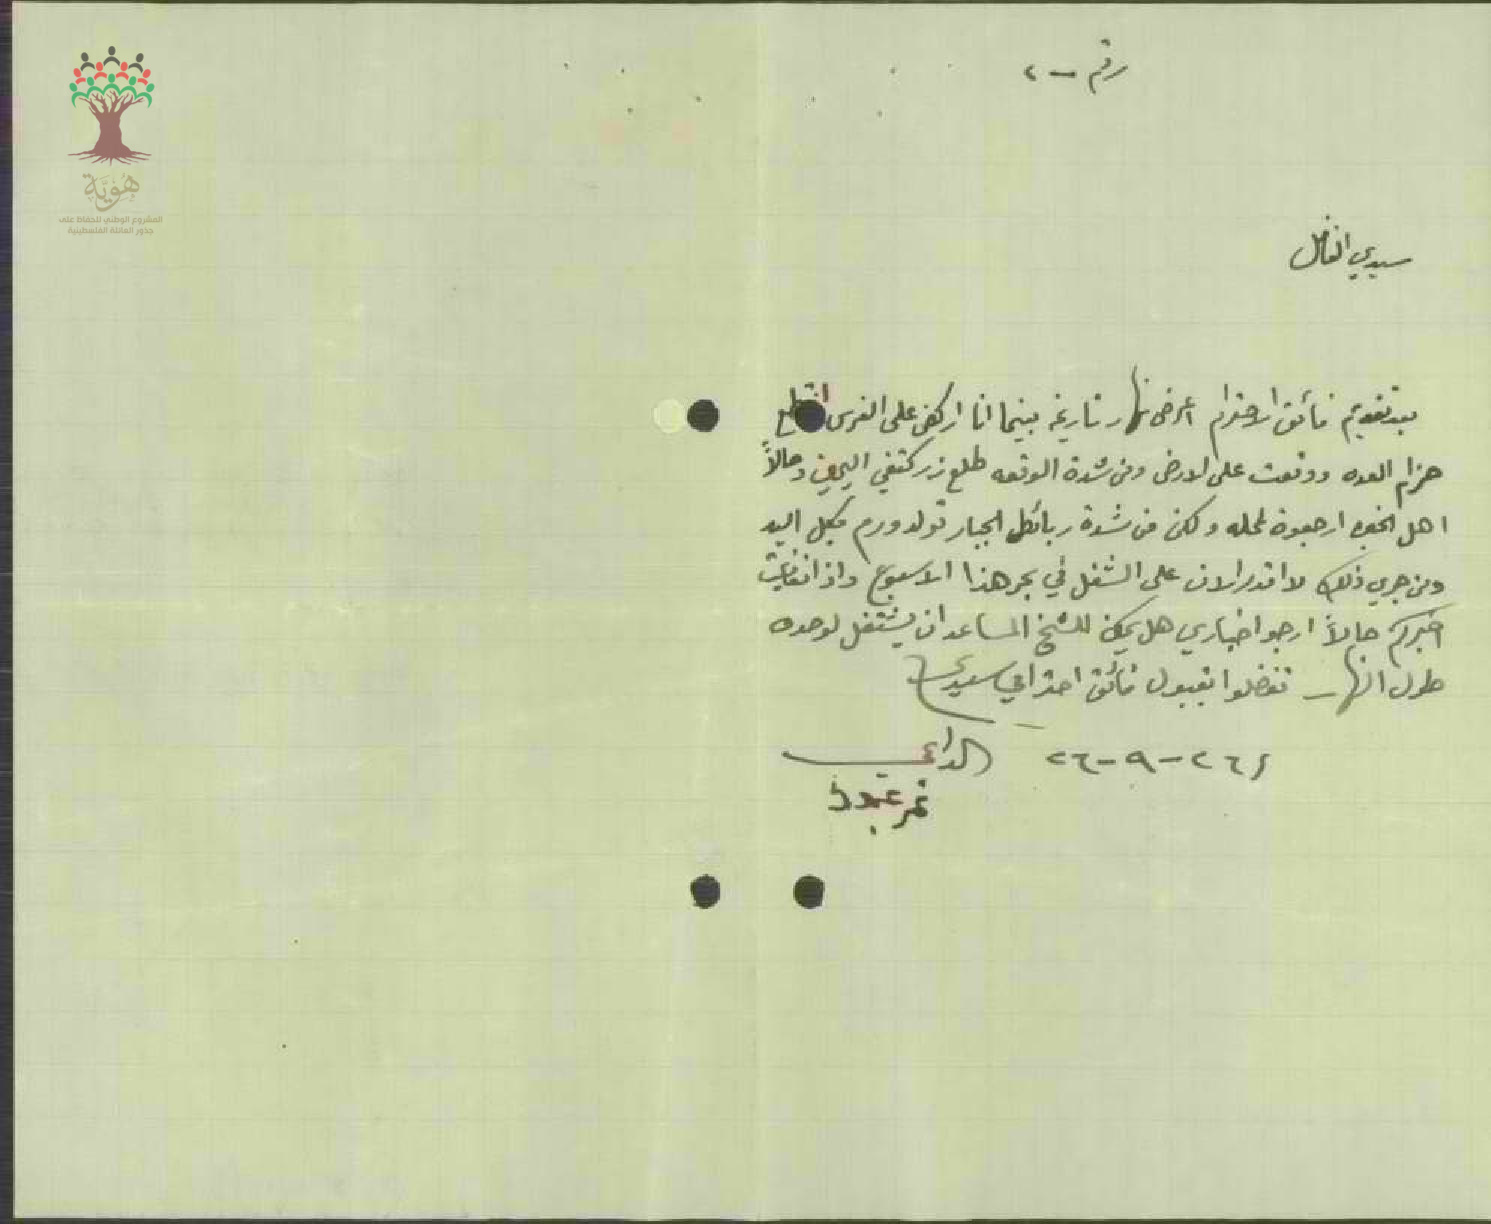 هُوِيَّة
المشروع الوطني للحفاظ على
جذور العائلة الفلسطينية
رقم - ٢
سيدي الفاضل
بعد تقديم فائق الاحترام اعرض نهار تاريخه بينما انا اركض على الفرس انقطع
حزام العده ووقعت على الارض ومن شدة الوقعه طلع زر كتفي اليمين وحالاً
اهل الخبره ارجعوه لمحله ولكن من شدة ربائط الجبار تولد ورم بكل اليد
ومن جري ذلك لا اقدر الان على الشغل في بحر هذا الاسبوع واذا
اخبركم حالاً ارجو اخباري هل يمكن للشيخ المساعد ان يشتغل لوحده
طول النهار تفضلوا بقبول فائق احترامي سيدي
٢٦-٩-٢٦ الداعي
نمر